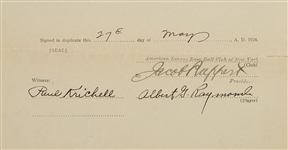 Signed in duplicate this 27th day of May A. D. 1926.
[SEAL]
American League Base Ball Club of New York
(Club)
Jacob Ruppert
Witness:
Paul Krichell Albert G. Raymond
(Player)